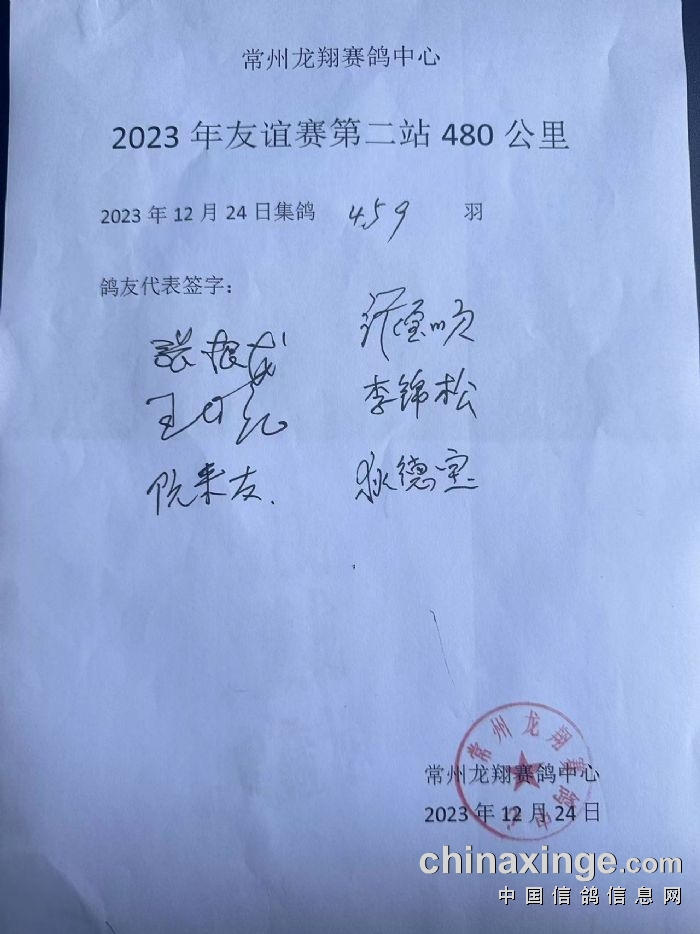 常州龙翔赛鸽中心
2023 年友谊赛第二站 480 公里
2023 年 12 月 24 日集鸽 459 羽
鸽友代表签字：
张根
王
李锦松
阮来友.
狄德宝
常州龙翔赛鸽中心
常州龙翔赛鸽中心
2023 年 12 月 24 日
chinaxinge.com
中国信鸽信息网